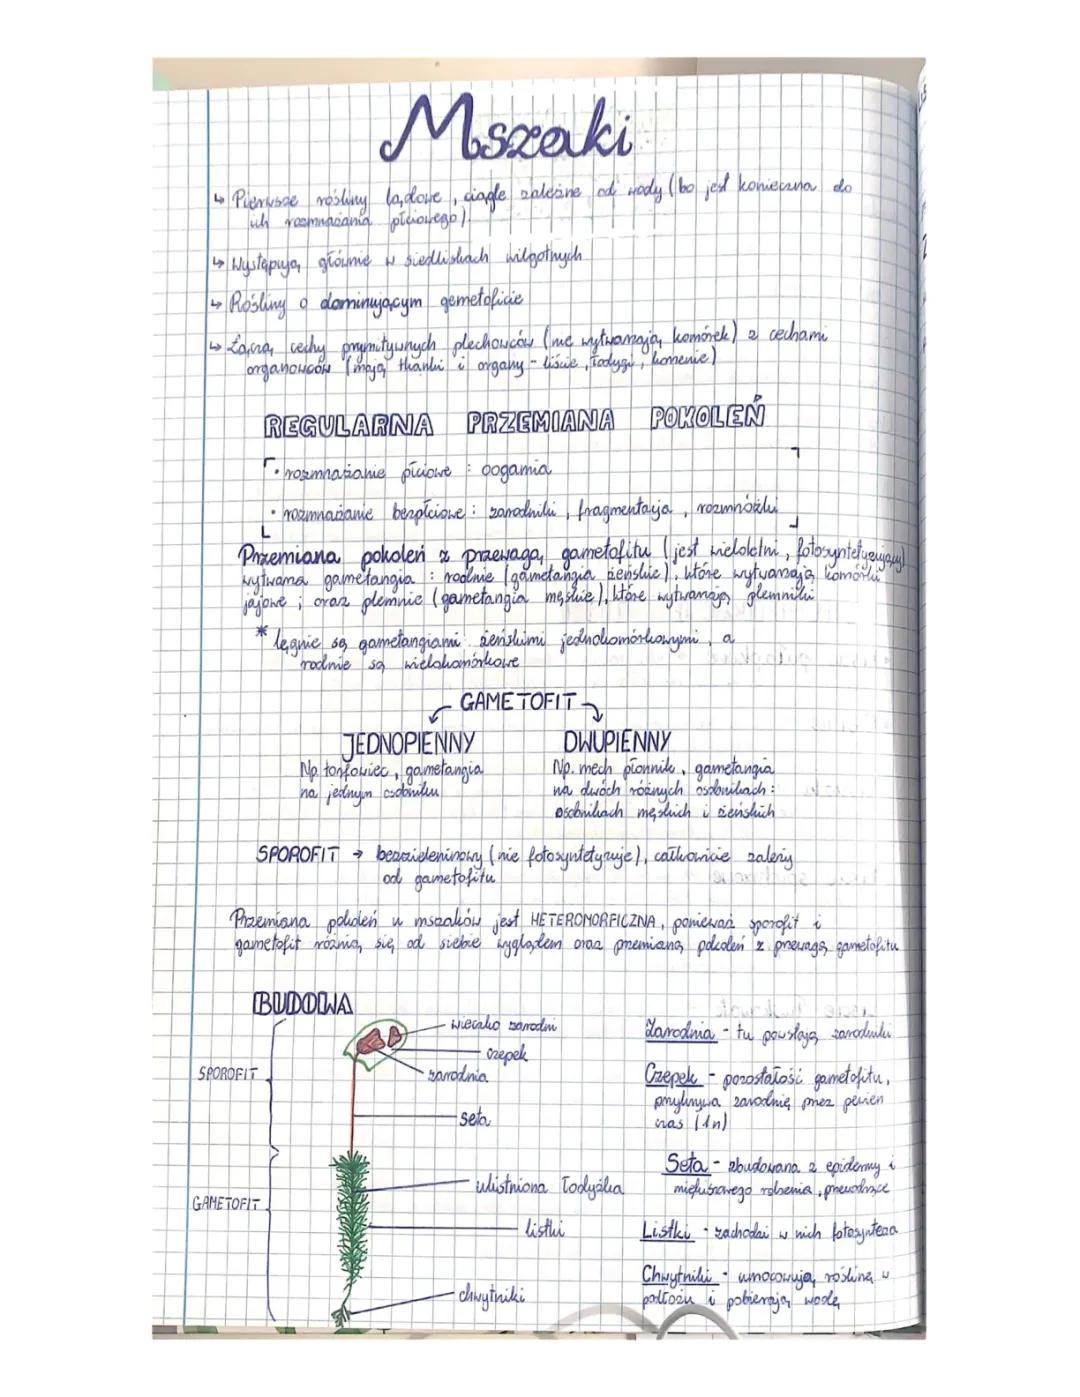 Mszaki
↳ Pierwsze rośliny lądowe, ciągle zależne od wody (bo jest konieczna do
ich rozmnażania płciowego)
↳ Występują głównie w siedliskach wilgotnych
↳ Rośliny o dominującym gametoficie
↳ Łączą cechy prymitywnych plechowców (nie wytwarzają komórek) z cechami
organowców (mają tkanki i organy - liście, łodygi, korzenie)
REGULARNA PRZEMIANA POKOLEŃ
• rozmnażanie płciowe : oogamia
• rozmnażanie bezpłciowe : zarodniki, fragmentacja, rozmnóżki
Przemiana pokoleń z przewagą gametofitu (jest wieloletni, fotosyntetyzujący)
wytwarza gametangia : rodnie (gametangia żeńskie), które wytwarzają komórki
jajowe ; oraz plemnie (gametangia męskie), które wytwarzają plemniki
* lęgnie są gametangiami żeńskimi jednokomórkowymi, a
rodnie są wielokomórkowe
GAMETOFIT
JEDNOPIENNY DWUPIENNY
Np. torfowiec, gametangia Np. mech płonnik, gametangia
na jednym osobniku na dwóch różnych osobnikach :
osobnikach męskich i żeńskich
SPOROFIT → bezzieleninowy (nie fotosyntetyzuje), całkowicie zależy
od gametofitu
Przemiana pokoleń u mszaków jest HETEROMORFICZNA, ponieważ sporofit i
gametofit różnią się od siebie wyglądem oraz przemianą pokoleń z przewagą gametofitu
BUDOWA
wieczko zarodni
czepek
zarodnia
SPOROFIT
seta
ulistniona łodyżka
GAMETOFIT
listki
chwytniki
Zarodnia - tu powstają zarodniki
Czepek - pozostałość gametofitu,
przykrywa zarodnię przez pewien
czas (1n)
Seta - zbudowana z epidermy i
miękiszowego rdzenia, przewodzące
Listki - zachodzi w nich fotosynteza
Chwytniki - umocowują roślinę w
podłożu i pobierają wodę